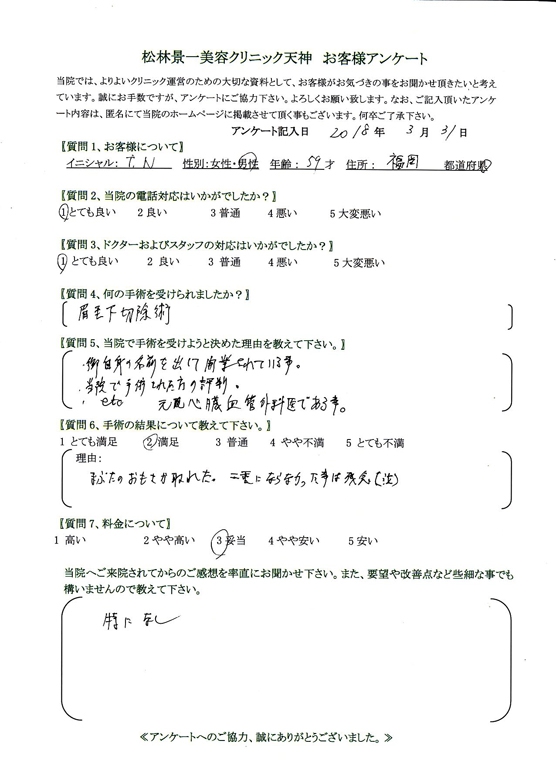 松林景一美容クリニック天神　お客様アンケート
当院では、よりよいクリニック運営のための大切な資料として、お客様がお気づきの事をお聞かせ頂きたいと考え
ています。誠にお手数ですが、アンケートにご協力下さい。よろしくお願い致します。なお、ご記入頂いたアンケ
ート内容は、匿名にて当院のホームページに掲載させて頂く事もございます。何卒ご了承下さい。
アンケート記入日　2018年　3月　31日
【質問1、お客様について】
イニシャル：T.N　性別：女性・男性　年齢：59才　住所：福岡　都道府県
【質問2、当院の電話対応はいかがでしたか？】
1とても良い　2良い　3普通　4悪い　5大変悪い
【質問3、ドクターおよびスタッフの対応はいかがでしたか？】
1とても良い　2良い　3普通　4悪い　5大変悪い
【質問4、何の手術を受けられましたか？】
眉毛下切除術
【質問5、当院で手術を受けようと決めた理由を教えて下さい。】
・御自身の名前を出して開業されている事。
・当院で手術された方の評判。
・etc　元心臓血管外科医である事。
【質問6、手術の結果について教えて下さい。】
1とても満足　2満足　3普通　4やや不満　5とても不満
理由：
まぶたのおもさが取れた。二重にならなかった事は残念
【質問7、料金について】
1高い　2やや高い　3妥当　4やや安い　5安い
当院へご来院されてからのご感想を率直にお聞かせ下さい。また、要望や改善点など些細な事でも
構いませんので教えて下さい。
特になし
≪アンケートへのご協力、誠にありがとうございました。≫